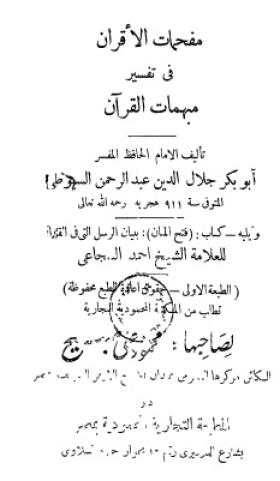 مفحمات الأقران
فى تفسير
مبهمات القرآن
تأليف الامام الحافظ المفسر
أبو بكر جلال الدين عبد الرحمن السيوطى
المتوفى سنة ٩١١ هجرية رحمه الله تعالى
ويليه – كتاب : (فتح المنان) : بيان الرسل التى فى القرآن
للعلامة الشيخ احمد السجاعى
(الطبعة الاولى – حقوق اعادة الطبع محفوظة)
تطلب من المكتبة المحمودية التجارية
لصاحبها : محمود على صبيح
الكائن مركزها
در
المطبعة التجارية المحمودية بمصر
بشارع